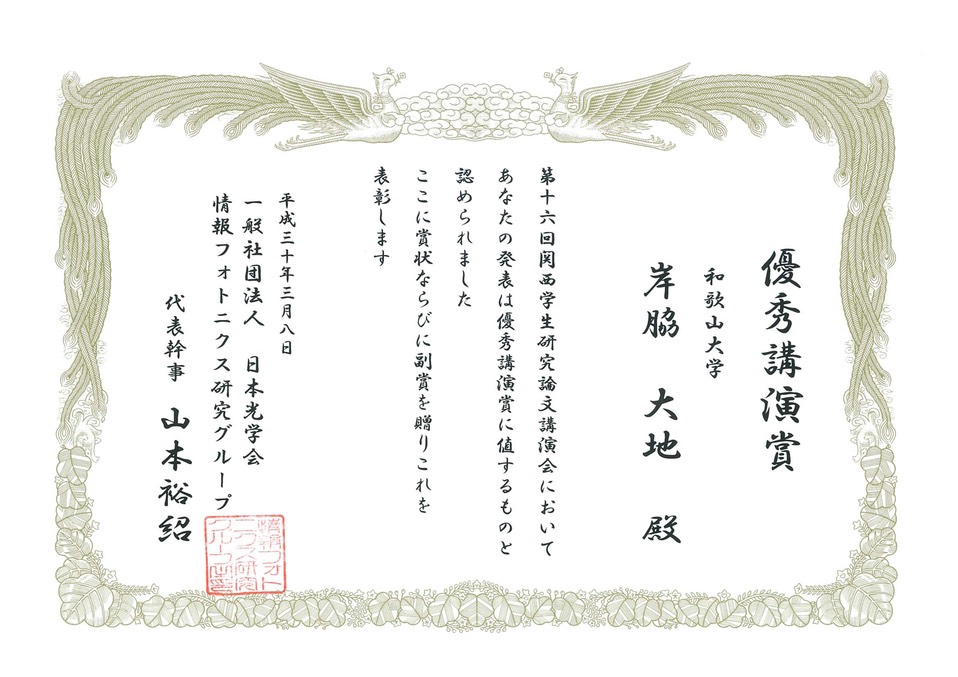 優秀講演賞
和歌山大学
岸脇 大地 殿
第十六回関西学生研究論文講演会において
あなたの発表は優秀講演賞に値するものと
認められました
ここに賞状ならびに副賞を贈りこれを
表彰します
平成三十年三月八日
一般社団法人 日本光学会
情報フォトニクス研究グループ
代表幹事 山本裕紹
情報フォト
ニクス研究
グループ印